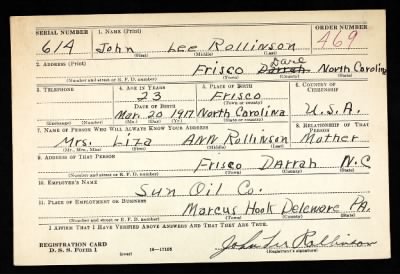 SERIAL NUMBER 1. NAME (Print) ORDER NUMBER
614 John Lee Rollinson 469
(First) (Middle) (Last)
2. ADDRESS (Print) Dare
Frisco Darrah North Carolina
(Number and street or R. F. D. number) (Town) (County) (State)
3. TELEPHONE 4. AGE IN YEARS 5. PLACE OF BIRTH 6. COUNTRY OF CITIZENSHIP
23 Frisco
DATE OF BIRTH (Town or county)
Mar. 20 1917 North Carolina U.S.A.
(Exchange) (Number) (Mo.) (Day) (Yr.) (State or country)
7. NAME OF PERSON WHO WILL ALWAYS KNOW YOUR ADDRESS 8. RELATIONSHIP OF THAT PERSON
Mrs. Liza ANN Rollinson Mother
(Mr., Mrs., Miss) (First) (Middle) (Last)
9. ADDRESS OF THAT PERSON
Frisco Darrah N.C
(Number and street or R. F. D. number) (Town) (County) (State)
10. EMPLOYER'S NAME
Sun Oil Co.
11. PLACE OF EMPLOYMENT OR BUSINESS
Marcus Hook Deleware PA.
(Number and street or R. F. D. number) (Town) (County) (State)
I AFFIRM THAT I HAVE VERIFIED ABOVE ANSWERS AND THAT THEY ARE TRUE.
REGISTRATION CARD
D. S. S. Form 1 (over) 16—17105 John Lee Rollinson